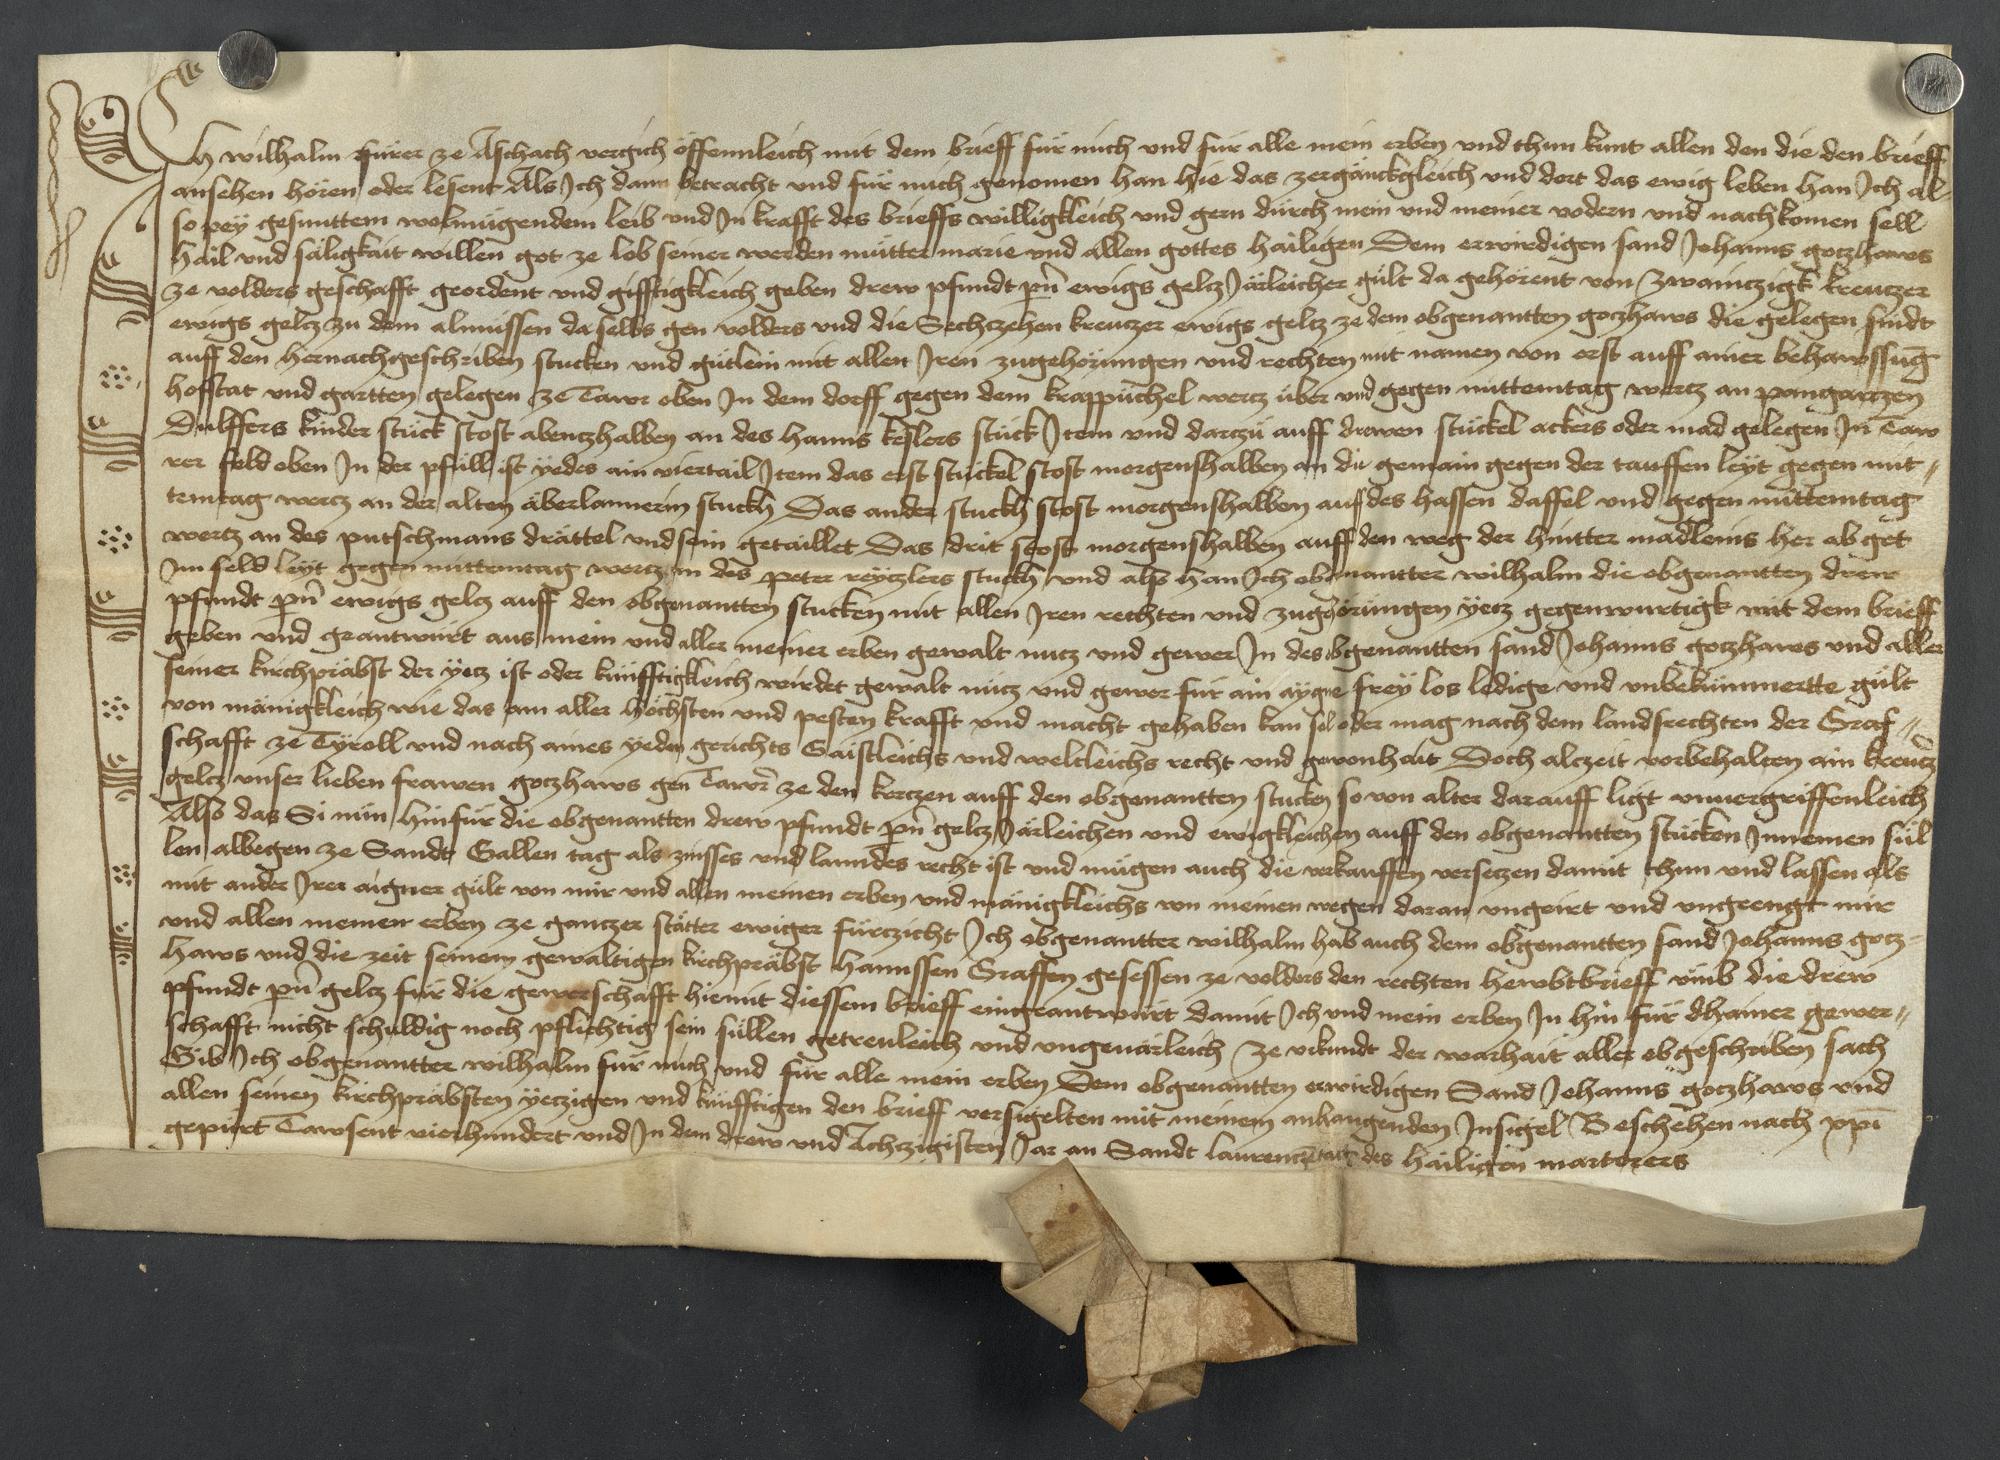 Ich wilhalm fürer ze Aschach vergich öffennleich mit dem brieff für mich vnd für alle mein erben vnd thun kunt allen den die den brieff
ansehen hören oder lesent Als Ich dann betracht vnd für mich genomen han hie das zergänckgleich vnd dort das ewig leben han Ich al-
so pey gesunttem wolmügendem leib vnd In krafft des brieffs willigkleich vnd gern durch mein vnd meiner vodern vnd nachkomen sell
hail vnd säligkait willen got ze lob seiner werden mutter marie vnd allen gottes hailigen Dem erwirdigen sand Johanns goczhaws
ze volders geschafft geordent vnd gifftigkleich geben drew pfundt pn̄ ewigs gelcz Järleicher gült da gehörent von zwainczigk kreuczer
ewigs gelcz zu dem almussen da selbs gen volders vnd die Sechczehen kreuczer ewigs gelcz ze dem obgenantten goczhaws die gelegen sindt
auff den hernachgeschriben stucken vnd gütlein mit allen Iren zugehörungen vnd rechten mit namen von erst auff ainer behawssuḡ
hofstat vnd gartten gelegen ze Tawr oben In dem dorff gegen dem krappüchel wercz über vnd gegen mittemtag wertz an pangarczen
Dulffers kinder stuck stost abenczhalben an des hanns keslers stuck Item vnd darczü auff drewen stückel ackers oder mad gelegen In Taw
rer feld oben In der pfüll ist yedes ain viertail Item das erst stuckel stost morgenshalben an die gemain gegen der tauffen leyt gegen mit-
temtag wercz an der alten äberlannerin stuckh Das ander stuckh stost morgenshalben auf des hassen daffel vnd gegen mittemtag
wertz an des putschmans drättel vnd sein getaillet Das drit stost morgenshalben auff den weg der hintter mädleins her ab get
Im feld leyt gegen mittemtag wercz an des peter reyczlers stuckh vnd also han Ich obgenantter wilhalm die obgenantten drew
pfundt pn̄ ewigs gelcz auff den obgenantten stucken mit allen Iren rechten vnd zugehörungen yecz gegenwurtigk mit dem brieff
geben vnd geantwurt aus mein vnd aller meiner erben gewalt nucz vnd gewer In des obgenantten sand Johanns goczhaws vnd aller
seiner kirchpräbst der yecz ist oder künfftigkleich wirdet gewalt nücz vnd gewer für ain aygne frey los ledige vnd vnbekümmertte gült
von mänigkleich wie das am aller höchsten vnd pesten krafft vnd macht gehaben kan sol oder mag nach dem landsrechten der Graf-
schafft ze Tyroll vnd nach aines yeden gerichts Gaistleichs vnd weltleichs recht vnd gewonhait Doch alczeit vorbehalten ain kreucz̄
gelcz vnser lieben frawen goczhaws gen Tawr̄ ze den kerczen auff den obgenantten stucken so von alter darauff ligt vnuergriffenleich
Also das Si nun hinfür die obgenantten drew pfundt pn̄ gelcz Järleichen vnd ewigkleichen auff den obgenantten stücken Innemen sül
len albegen ze Sandt Gallen tag als zinsses vnd lanndes recht ist vnd mügen auch die verkauffen versetzen damit thun vnd lassen als
mit ander Irer aigner gült von mir vnd allen meinen erben vnd mänigkleichs von meinen wegen daran vngeirt vnd vngeengt mir
vnd allen meinen erben ze ganczer stätter ewiger fürczicht Ich obgenantter wilhalm hab auch dem obgenantten sand Johanns gocz-
haws vnd die zeit seinem gewaltigen kirchpräbst Hannssen Graffen gesessen ze volders den rechten hewbtbrieff vmb die drew
pfundt pn̄ gelcz für die gewerschafft hiemit diessem brieff eingeantwurt damit Ich vnd mein erben In hin für dhainer gewer-
schafft nicht schuldig noch pflichtig sein süllen getreuleich vnd vngeuärleich ze vrkundt der warhait aller obgeschriben sach
Gib Ich obgenantter wilhalm für mich vnd für alle mein erben Dem obgenantten erwirdigen Sand Johanns goczhaws vnd
allen seinen kirchpräbsten yeczigen vnd künfftigen den brieff versigelten mit meinem anhangenden Insigel Beschehen nach xpī
gepürt Tawsent vierhundert vnd In dem drew vnd Achczigisten Jar an Sandt laurenczn̄ tag des hailigen martrers